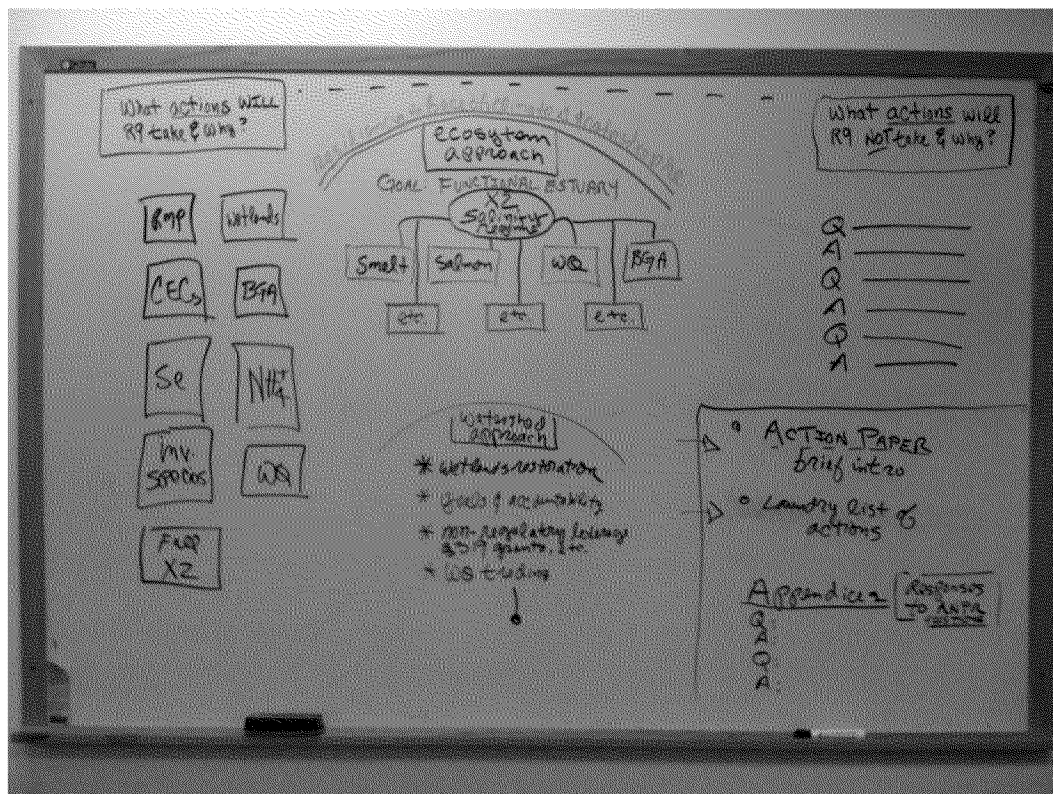 What actions WILL
R9 take & why?
RMP
Wetlands
CECs
BGA
Se
NH4+
Inv.
WQ
FALL
X2
ecosytem
approach
GOAL: FUNCTIONAL ESTUARY
X2
Salinity
Smelt
Salmon
WQ
BGA
etc.
etc.
etc.
Watershed
approach
* wetlands restoration
* goals & accountability
* non-regulatory leverage
319 grants, etc.
* WQ trading
What actions will
R9 NOT take & why?
Q
A
Q
A
Q
A
ACTION PAPER
brief intro
Laundry list of
actions
Appendices
RESPONSES
TO ANPR
Q:
A:
Q:
A: